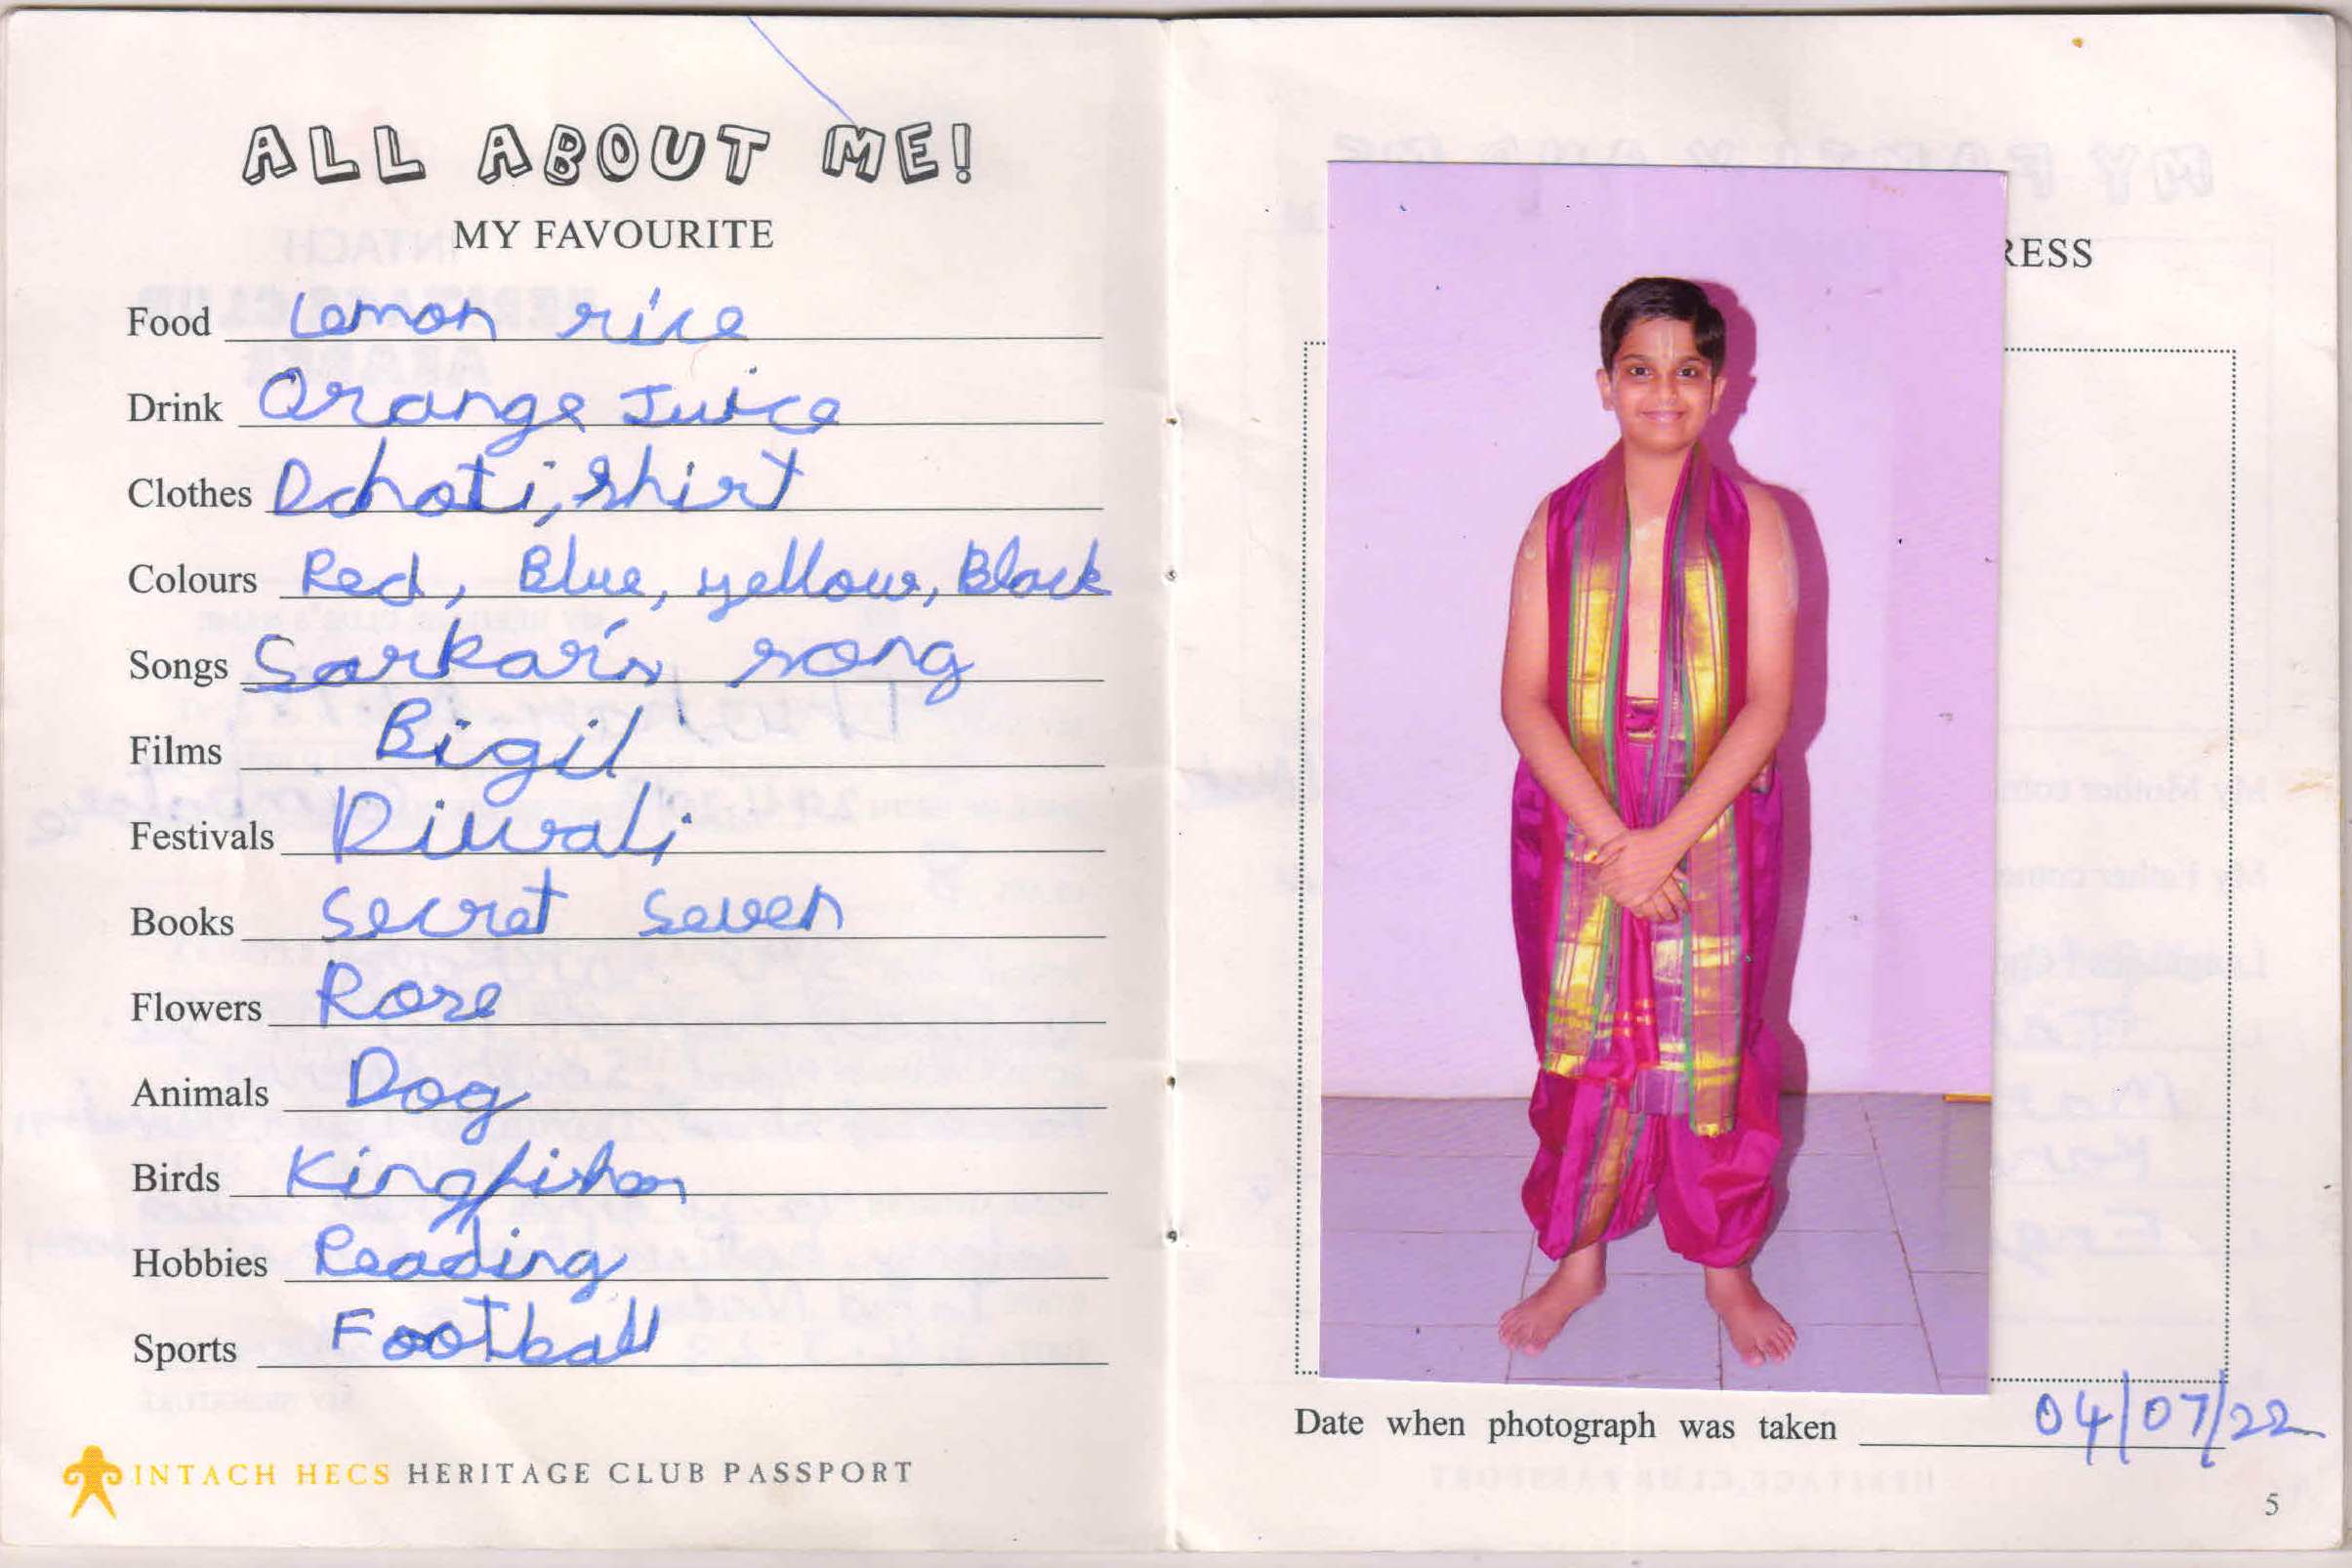 ALL ABOUT ME!
MY FAVOURITE
Food Lemon rice
Drink Orange Juice
Clothes Dhoti, shirt
Colours Red, Blue, yellow, Black
Songs Sarkar's song
Films Bigil
Festivals Diwali
Books Secret Seven
Flowers Rose
Animals Dog
Birds Kingfisher
Hobbies Reading
Sports Football
INTACH HECS HERITAGE CLUB PASSPORT
RESS
Date when photograph was taken 04/07/22
5